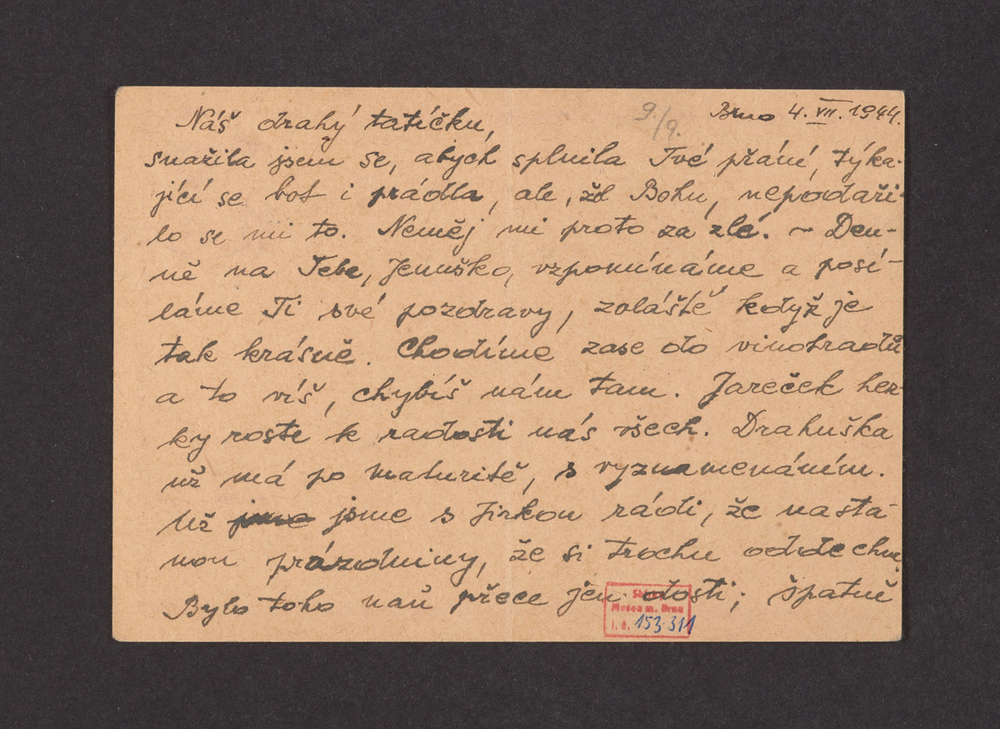 9./9.
Brno 4. VII. 1944.
Náš drahý tatíčku,
snažila jsem se, abych splnila Tvé přání, týka-
jící se bot i prádla, ale, žel Bohu, nepodaři-
lo se mi to. Neměj mi proto za zlé. ~ Den-
ně na Tebe, Jenuško, vzpomínáme a posí-
láme Ti své pozdravy, zvláště když je
tak krásně. Chodíme zase do vinohradů
a to víš, chybíš nám tam. Jareček hez-
ky roste k radosti nás všech. Drahuška
už má po maturitě, s vyznamenáním.
Už jsme s Jirkou rádi, že nasta-
nou prázdniny, že si trochu oddechne
Bylo toho naň přece jen dosti; špatně
Musea m. Brna
i. č. 153.311